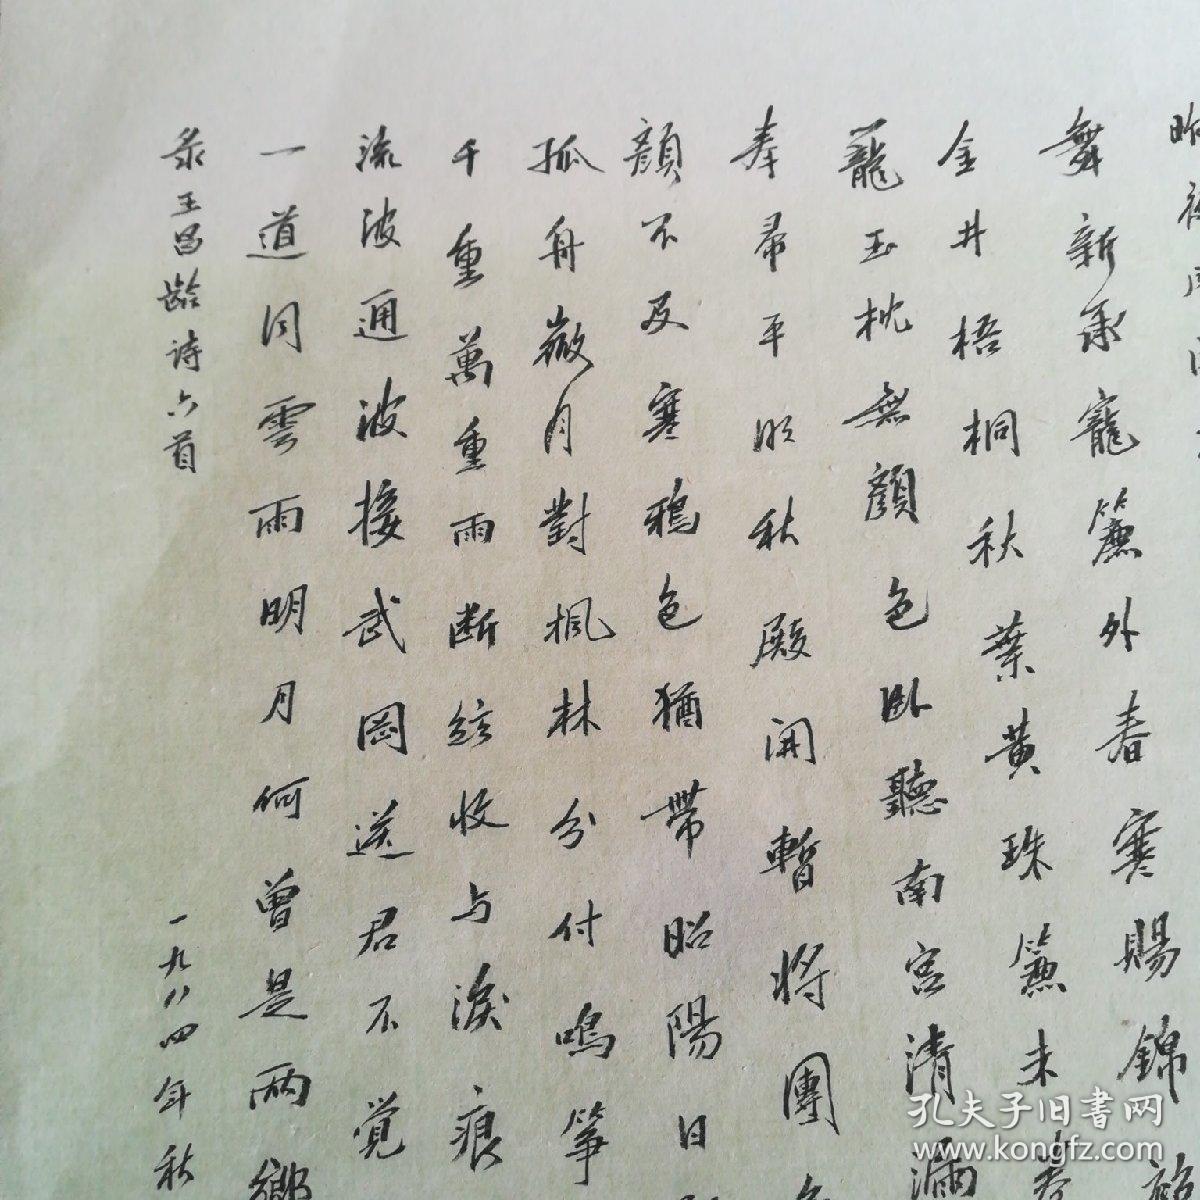 昨夜風開
舞新承寵簾外春寒賜錦
金井梧桐秋葉黃珠簾未捲
薰籠玉枕無顏色臥聽南宮清漏
奉帚平明秋殿開暫將團
顏不及寒鴉色猶帶昭陽日
孤舟微月對楓林分付鳴箏
千重萬重雨断絃收与淚痕
流波通波接武岡送君不覚
一道同雲雨明月何曾是两鄉
录王昌齡诗六首
一九八四年秋
孔夫子旧书网
www.kongfz.com